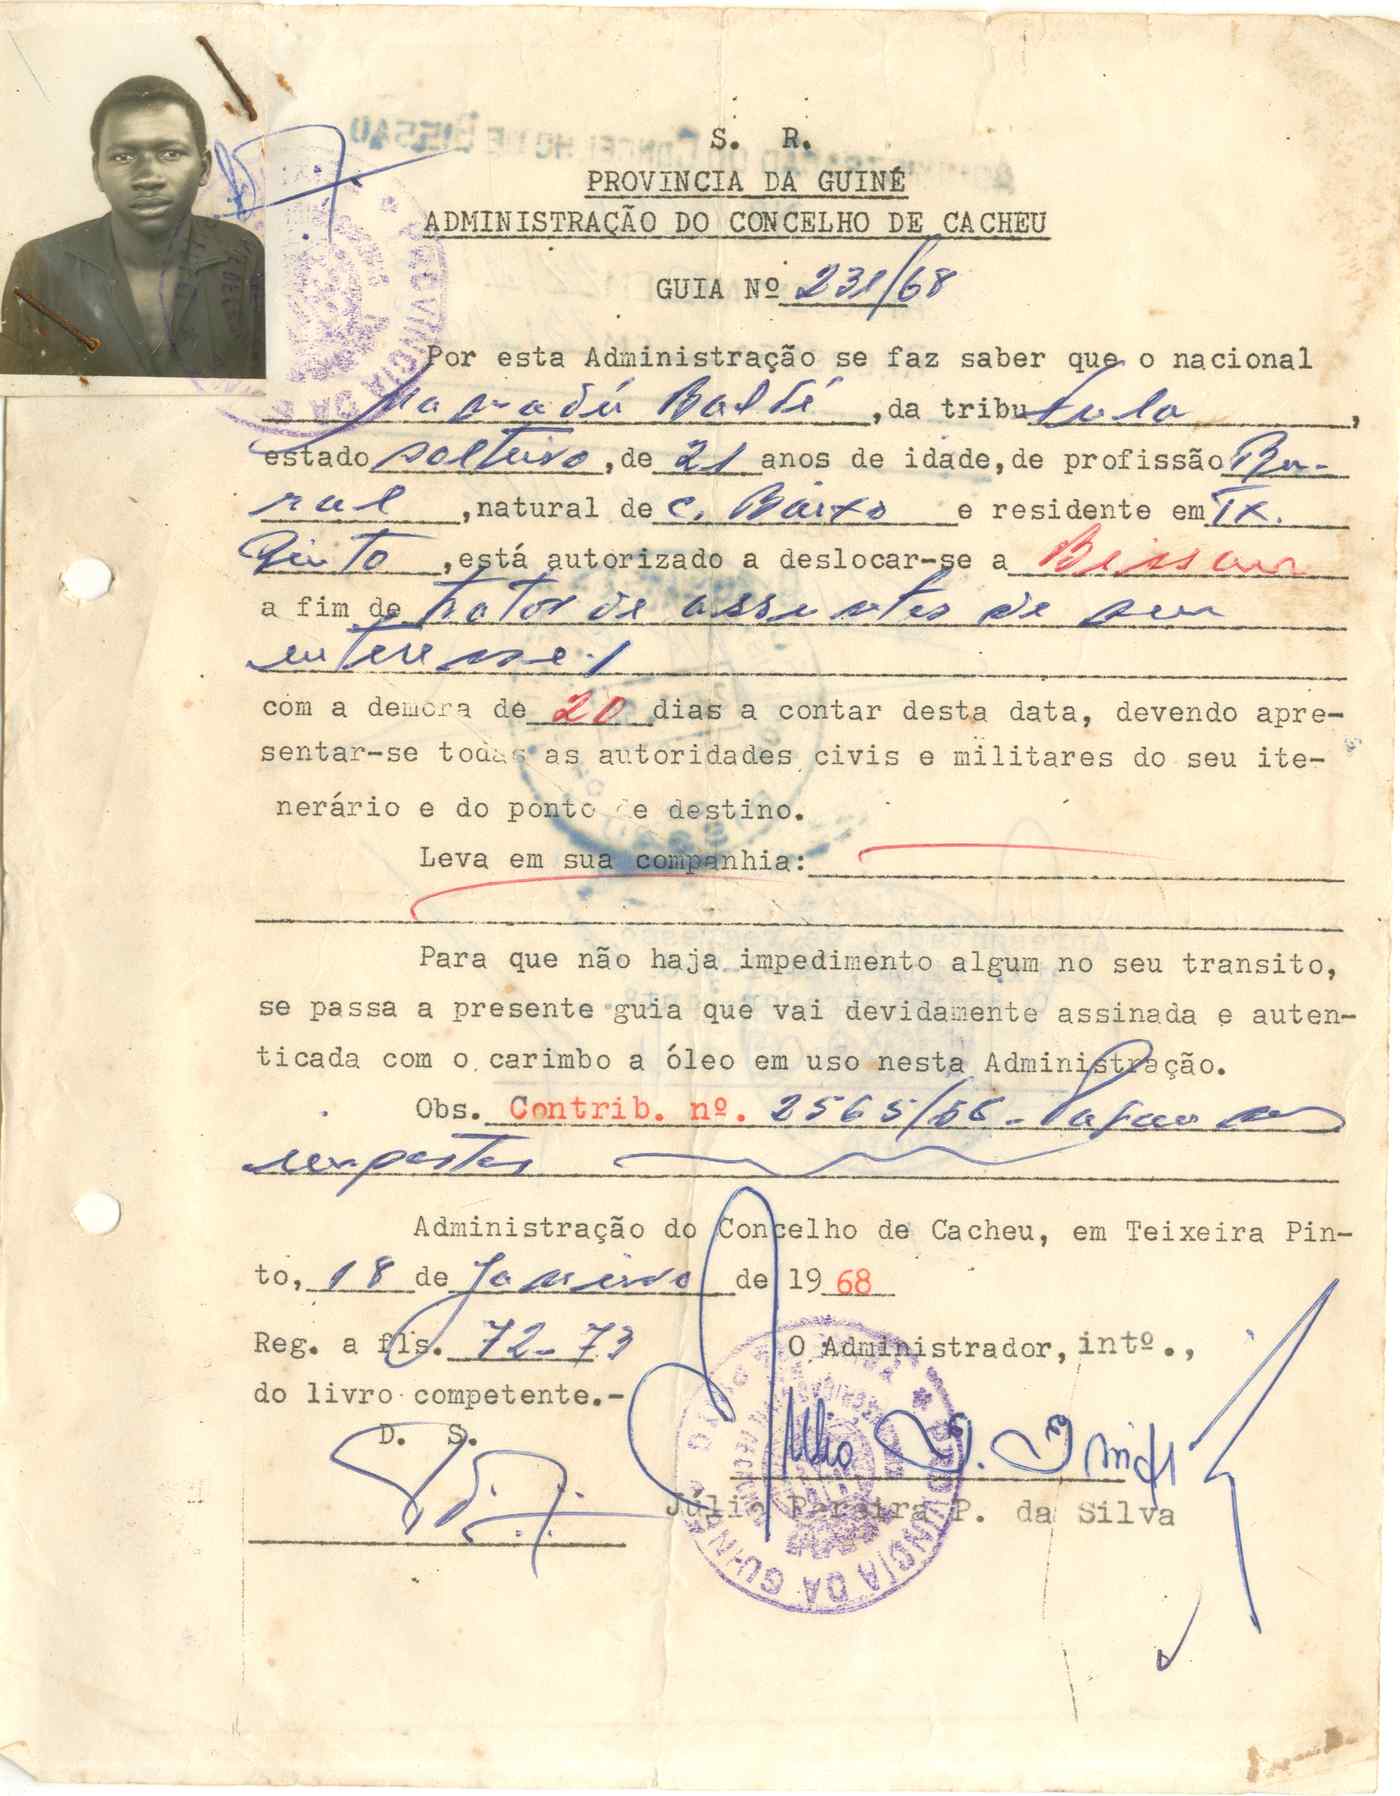 S. R.
PROVINCIA DA GUINÉ
ADMINISTRAÇÃO DO CONCELHO DE CACHEU
GUIA Nº 231/68
Por esta Administração se faz saber que o nacional
Mamadú Baldé, da tribu Fula,
estado solteiro, de 21 anos de idade, de profissão Ru-
ral, natural de C. Baixo e residente em Tx.
Pinto, está autorizado a deslocar-se a Bissau
a fim de tratar de assuntos de seu
interesse./
com a demora de 20 dias a contar desta data, devendo apre-
sentar-se todas as autoridades civis e militares do seu ite-
nerário e do ponto de destino.
Leva em sua companhia:
Para que não haja impedimento algum no seu transito,
se passa a presente guia que vai devidamente assinada e auten-
ticada com o carimbo a óleo em uso nesta Administração.
Obs. Contrib. nº. 2565/68 - Pagou os
impostos
Administração do Concelho de Cacheu, em Teixeira Pin-
to, 18 de Janeiro de 1968
Reg. a fls. 72-73
O Administrador, intº.,
do livro competente.-
D. S.
Júlio Pereira P. da Silva
PROVINCIA DA GUINÉ